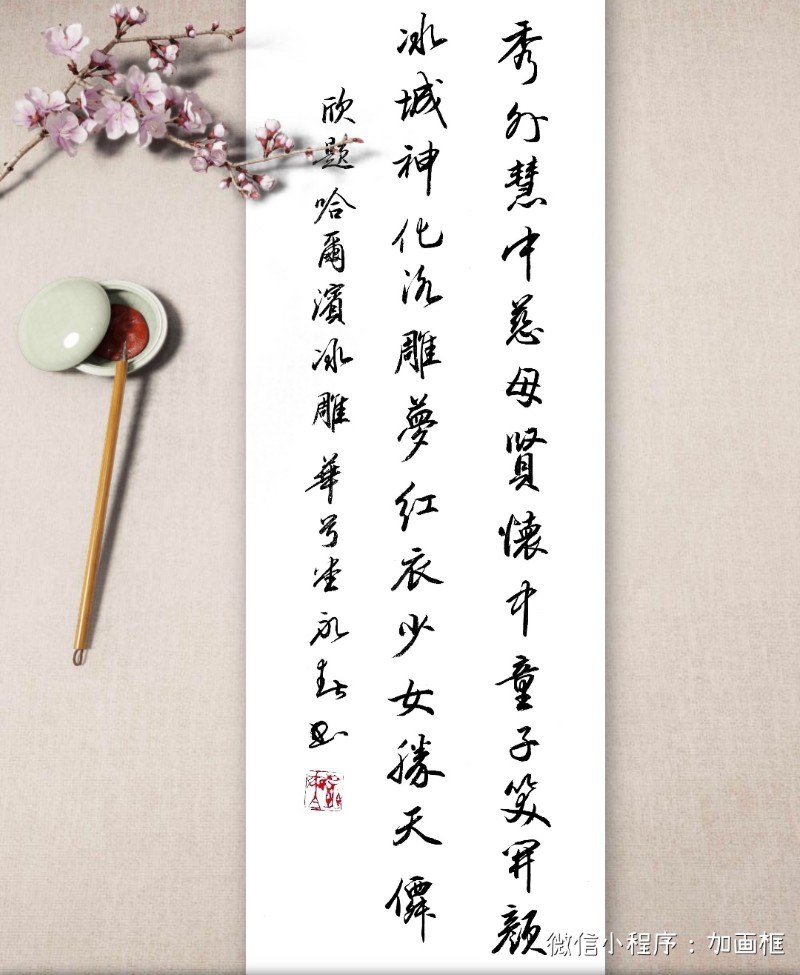 秀外慧中慈母賢懷中童子笑開顔
冰城神化冰雕夢红衣少女勝天僊
欣題哈爾濱冰雕華兮堂永春書
微信小程序：加画框